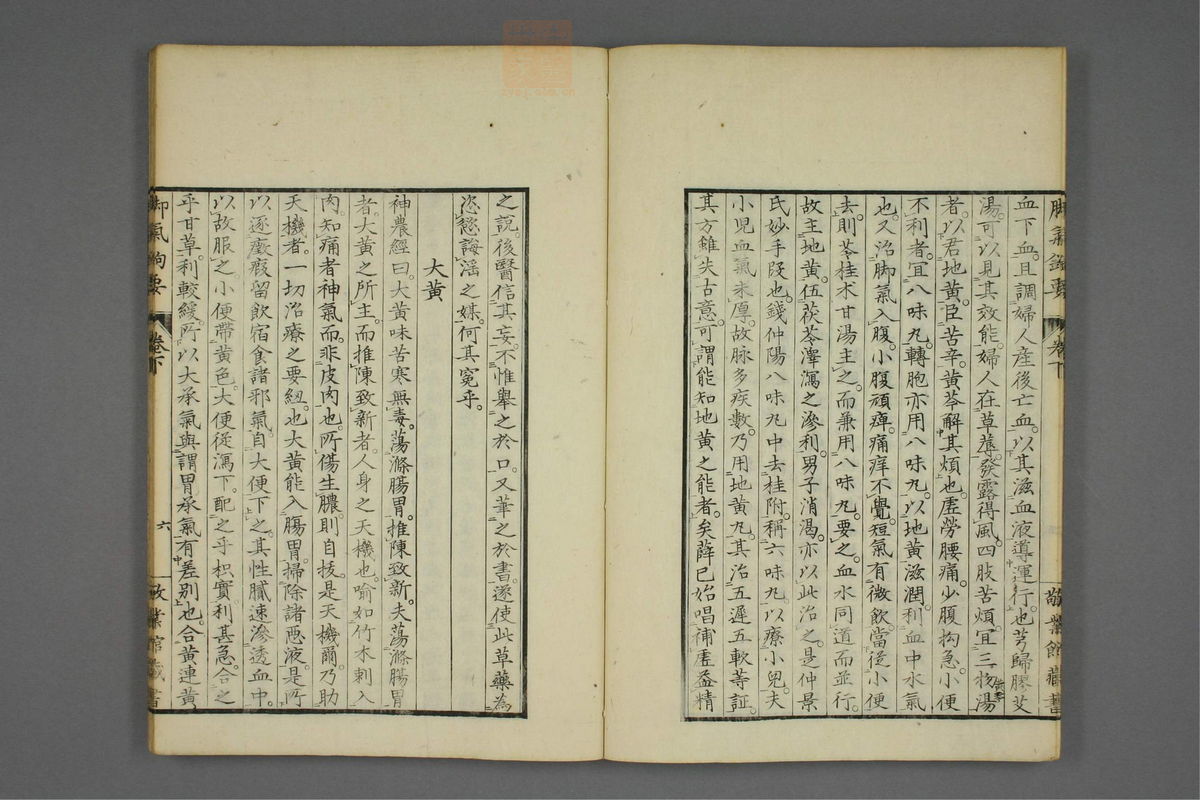 脚氣鉤要
卷下
敬業館藏書
血下血且調婦人産後亡血以其滋血液導運行也芎歸膠艾
湯可以見其效能婦人在草蓐發露得風四肢苦煩宜三物湯
者以君地黄臣苦辛黄芩解其煩也虚勞腰痛少腹拘急小便
不利者宜八味丸轉胞亦用八味丸以地黄滋潤利血中水氣
也又治脚氣入腹小腹頑痺痛痒不覺短氣有微飲當從小便
去則苓桂朮甘湯主之而兼用八味丸要之血水同道而並行
故主地黄伍茯苓澤瀉之滲利男子消渴亦以此治之是仲景
氏妙手段也錢仲陽八味丸中去桂附稱六味丸以療小兒夫
小児血氣未厚故脉多疾數乃用地黄丸其治五遲五軟等証
其方雖失古意可謂能知地黄之能者矣薛已始唱補虚益精
之說後醫信其妄不惟舉之於口又筆之於書遂使此草藥為
恣慾誨滛之媒何其寃乎
大黄
神農經曰大黄味苦寒無毒蕩滌腸胃推陳致新夫蕩滌腸胃
者大黄之所主而推陳致新者人身之天機也喻如竹木刺入
肉知痛者神氣而非皮肉也所傷生膿則自拔是天機爾乃助
天機者一切治療之要紐也大黄能入腸胃掃除諸惡液是所
以逐癥瘕留飲宿食諸邪氣自大便下之其性膩速滲透血中
以故服之小便帶黄色大便從瀉下配之乎枳實利甚急合之
乎甘草利較緩所以大承氣與謂胃承氣有差別也合黄連黄
脚氣鉤要
卷下
六
敬業館藏書